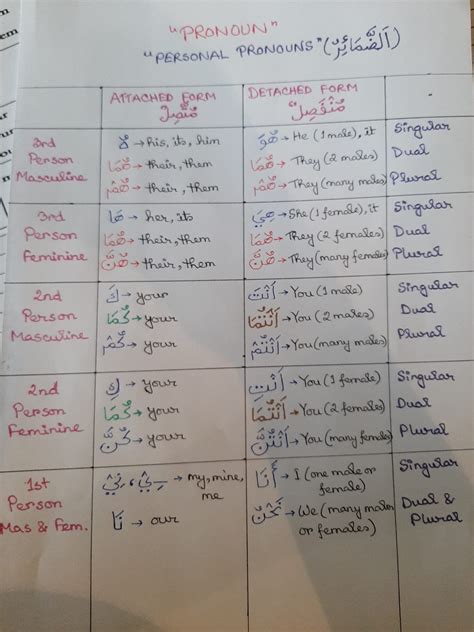 "PRONOUN"
"PERSONAL PRONOUNS" (اَلضَّمَائِرُ)
ATTACHED FORM
مُتَّصِلٌ
DETACHED FORM
مُنْفَصِلٌ
3rd Person Masculine
هُ → his, its, him
هُمَا → their, them
هُمْ → their, them
هُوَ → He (1 male), it
هُمَا → They (2 males)
هُمْ → They (many males)
Singular
Dual
Plural
3rd Person Feminine
هَا → her, its
هُمَا → their, them
هُنَّ → their, them
هِيَ → She (1 female), it
هُمَا → They (2 females)
هُنَّ → They (many females)
Singular
Dual
Plural
2nd Person Masculine
كَ → your
كُمَا → your
كُمْ → your
اَنْتَ → You (1 male)
اَنْتُمَا → You (2 males)
اَنْتُمْ → You (many males)
Singular
Dual
Plural
2nd Person Feminine
كِ → your
كُمَا → your
كُنَّ → your
اَنْتِ → You (1 female)
اَنْتُمَا → You (2 females)
اَنْتُنَّ → You (many females)
Singular
Dual
Plural
1st Person Mas & Fem.
ـِيْ، نِيْ → my, mine, me
نَا → our
أَنَا → I (one male or female)
نَحْنُ → We (many males or females)
Singular
Dual & Plural